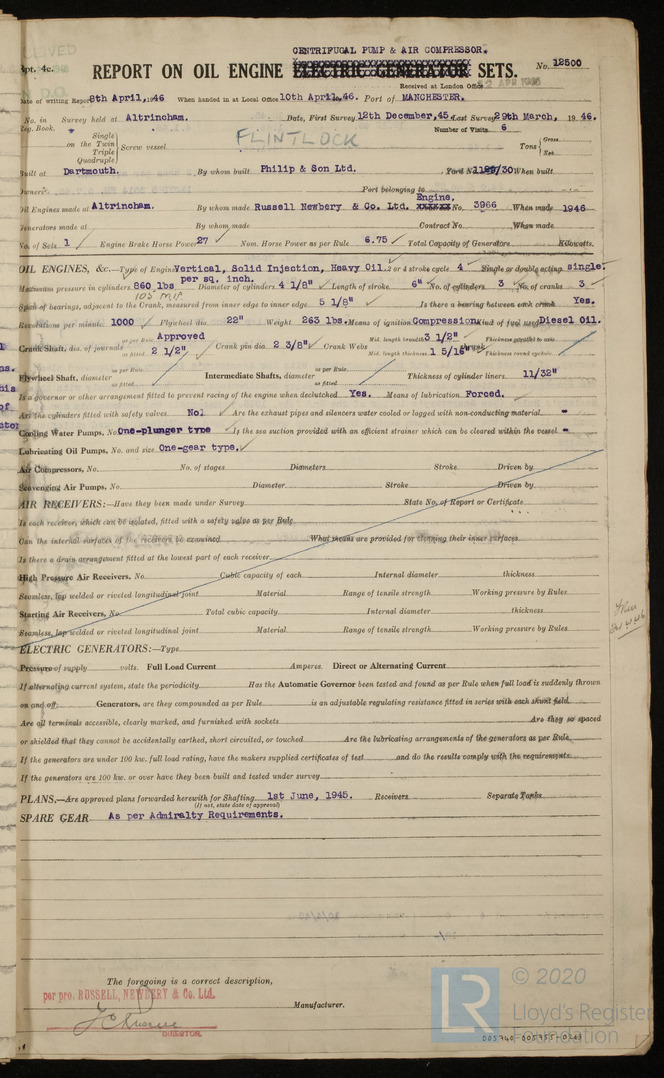 CENTRIFUGAL PUMP & AIR COMPRESSOR.
Rpt. 4c. REPORT ON OIL ENGINE ELECTRIC GENERATOR SETS. No. 12500
Received at London Office
Date of writing Report 8th April, 1946 When handed in at Local Office 10th April, 46. Port of MANCHESTER.
No. in Survey held at Altrincham. Date, First Survey 12th December, 45 Last Survey 29th March, 1946.
Reg. Book. Number of Visits 6
FLINTLOCK
Single
on the Twin
Triple
Quadruple
Screw vessel
Tons Gross
Net
Built at Dartmouth. By whom built Philip & Son Ltd. Yard No. When built
Owners Port belonging to
Oil Engines made at Altrincham. By whom made Russell Newbery & Co. Ltd. Engine. No. 3966 When made 1946
Generators made at By whom made Contract No. When made
No. of Sets 1 Engine Brake Horse Power 27 Nom. Horse Power as per Rule 6.75 Total Capacity of Generators Kilowatts.
OIL ENGINES, &c.—Type of Engine Vertical, Solid Injection, Heavy Oil. 2 or 4 stroke cycle 4 Single or double acting single.
Maximum pressure in cylinders 860 lbs per sq. inch. Diameter of cylinders 4 1/8" Length of stroke 6" No. of cylinders 3 No. of cranks 3
103 MIP
Span of bearings, adjacent to the Crank, measured from inner edge to inner edge 5 1/8" Is there a bearing between each crank Yes.
Revolutions per minute 1000 Flywheel dia. 22" Weight 263 lbs. Means of ignition Compression Kind of fuel used Diesel Oil.
Crank Shaft, dia. of journals as per Rule Approved as fitted 2 1/2" Crank pin dia. 2 3/8" Crank Webs Mid. length breadth 3 1/2" Thickness parallel to axis
Mid. length thickness 1 5/16" Thickness round eyehole
Flywheel Shaft, diameter as per Rule as fitted Intermediate Shafts, diameter as per Rule as fitted Thickness of cylinder liners 11/32"
Is a governor or other arrangement fitted to prevent racing of the engine when declutched Yes. Means of lubrication Forced.
Are the cylinders fitted with safety valves No. Are the exhaust pipes and silencers water cooled or lagged with non-conducting material -
Cooling Water Pumps, No. One-plunger type Is the sea suction provided with an efficient strainer which can be cleared within the vessel -
Lubricating Oil Pumps, No. and size One-gear type.
Air Compressors, No. No. of stages Diameters Stroke Driven by
Scavenging Air Pumps, No. Diameter Stroke Driven by
AIR RECEIVERS:—Have they been made under Survey State No. of Report or Certificate
Is each receiver, which can be isolated, fitted with a safety valve as per Rule
Can the internal surfaces of the receivers be examined What means are provided for cleaning their inner surfaces
Is there a drain arrangement fitted at the lowest part of each receiver
High Pressure Air Receivers, No. Cubic capacity of each Internal diameter thickness
Seamless, lap welded or riveted longitudinal joint Material Range of tensile strength Working pressure by Rules
Starting Air Receivers, No. Total cubic capacity Internal diameter thickness
Seamless, lap welded or riveted longitudinal joint Material Range of tensile strength Working pressure by Rules
ELECTRIC GENERATORS:—Type
Pressure of supply volts. Full Load Current Amperes. Direct or Alternating Current
If alternating current system, state the periodicity Has the Automatic Governor been tested and found as per Rule when full load is suddenly thrown
on and off Generators, are they compounded as per Rule is an adjustable regulating resistance fitted in series with each shunt field
Are all terminals accessible, clearly marked, and furnished with sockets Are they so spaced
or shielded that they cannot be accidentally earthed, short circuited, or touched Are the lubricating arrangements of the generators as per Rule
If the generators are under 100 kw. full load rating, have the makers supplied certificates of test and do the results comply with the requirements
If the generators are 100 kw. or over have they been built and tested under survey
PLANS.—Are approved plans forwarded herewith for Shafting 1st June, 1945. Receivers Separate Tanks
(If not, state date of approval)
SPARE GEAR As per Admiralty Requirements.
The foregoing is a correct description,
per pro. RUSSELL, NEWBERY & Co. Ltd.
Manufacturer.
DIRECTOR.
LR © 2020
Lloyd's Register
Foundation
005740-005755-0203